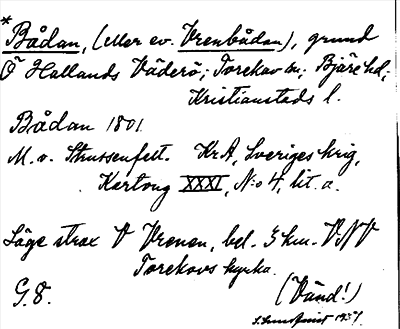 * Bådan, (eller ev. Vrenbådan), grund
Ö Hallands Väderö; Torekov sn; Bjäre hd;
Kristianstads l.
Bådan 1801.
M. v. Strussenfelt. KrA, Sveriges krig,
Kartong XXXI, No 4, lit. a.
Läge strax V Vrenen, bel. 3 km. VNV
Torekovs kyrka.
G. 8. (Vänd!)
S. 1951.